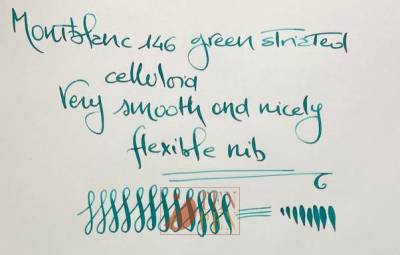 Montblanc 146 green striated
celluloid
Very smooth and nicely
flexible nib